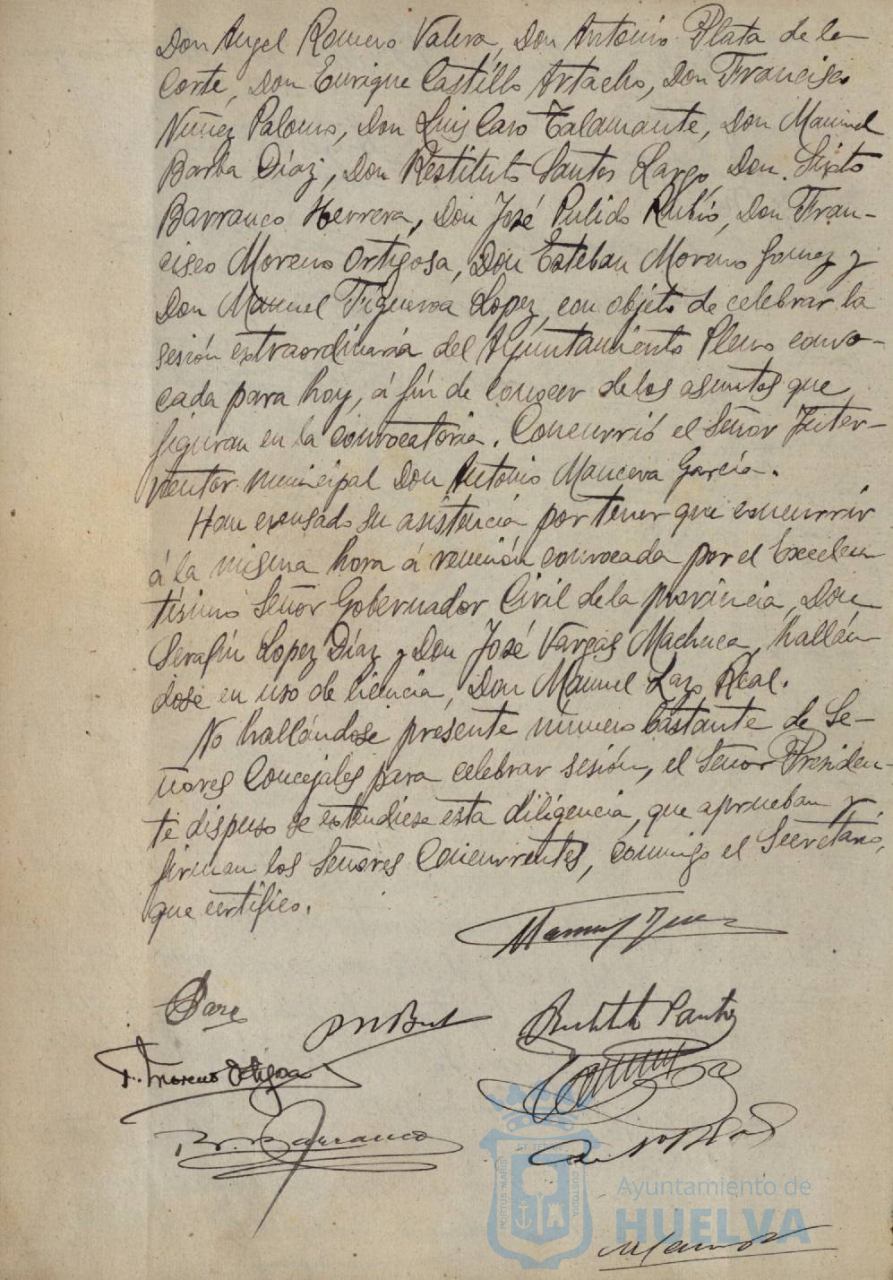 Don Angel Romero Valera, Don Antonio Plata de la
Corte, Don Enrique Castillo Artacho, Don Francisco
Nuñez Palomo, Don Luis Caro Talamante, Don Manuel
Barba Díaz, Don Restituto Santos Largo, Don Sixto
Barranco Herrera, Don José Pulido Rubio, Don Fran-
cisco Moreno Ortigosa, Don Esteban Moreno Gomez y
Don Manuel Figueroa Lopez, con objeto de celebrar la
sesión extraordinaria del Ayuntamiento Pleno convo-
cada para hoy, á fin de conocer de los asuntos que
figuran en la convocatoria. Concurrió el Señor Inter-
ventor municipal Don Antonio Mancera García.
Han excusado su asistencia por tener que concurrir
á la misma hora á reunión convocada por el Excelen
tísimo Señor Gobernador Civil de la provincia, Don
Serafín Lopez Díaz y Don José Vargas Machuca, hallán-
dose en uso de licencia, Don Manuel Lazo Real.
No hallándose presente número bastante de Se-
ñores Concejales para celebrar sesión, el Señor Presiden-
te dispuso se estendiese esta diligencia, que aprueban y
firman los Señores Concurrentes, conmigo el Secretario,
que certifico.
F. Moreno Ortigosa
Barranco
PORTUS MARIS
CUSTODIA
Ayuntamiento de
HUELVA